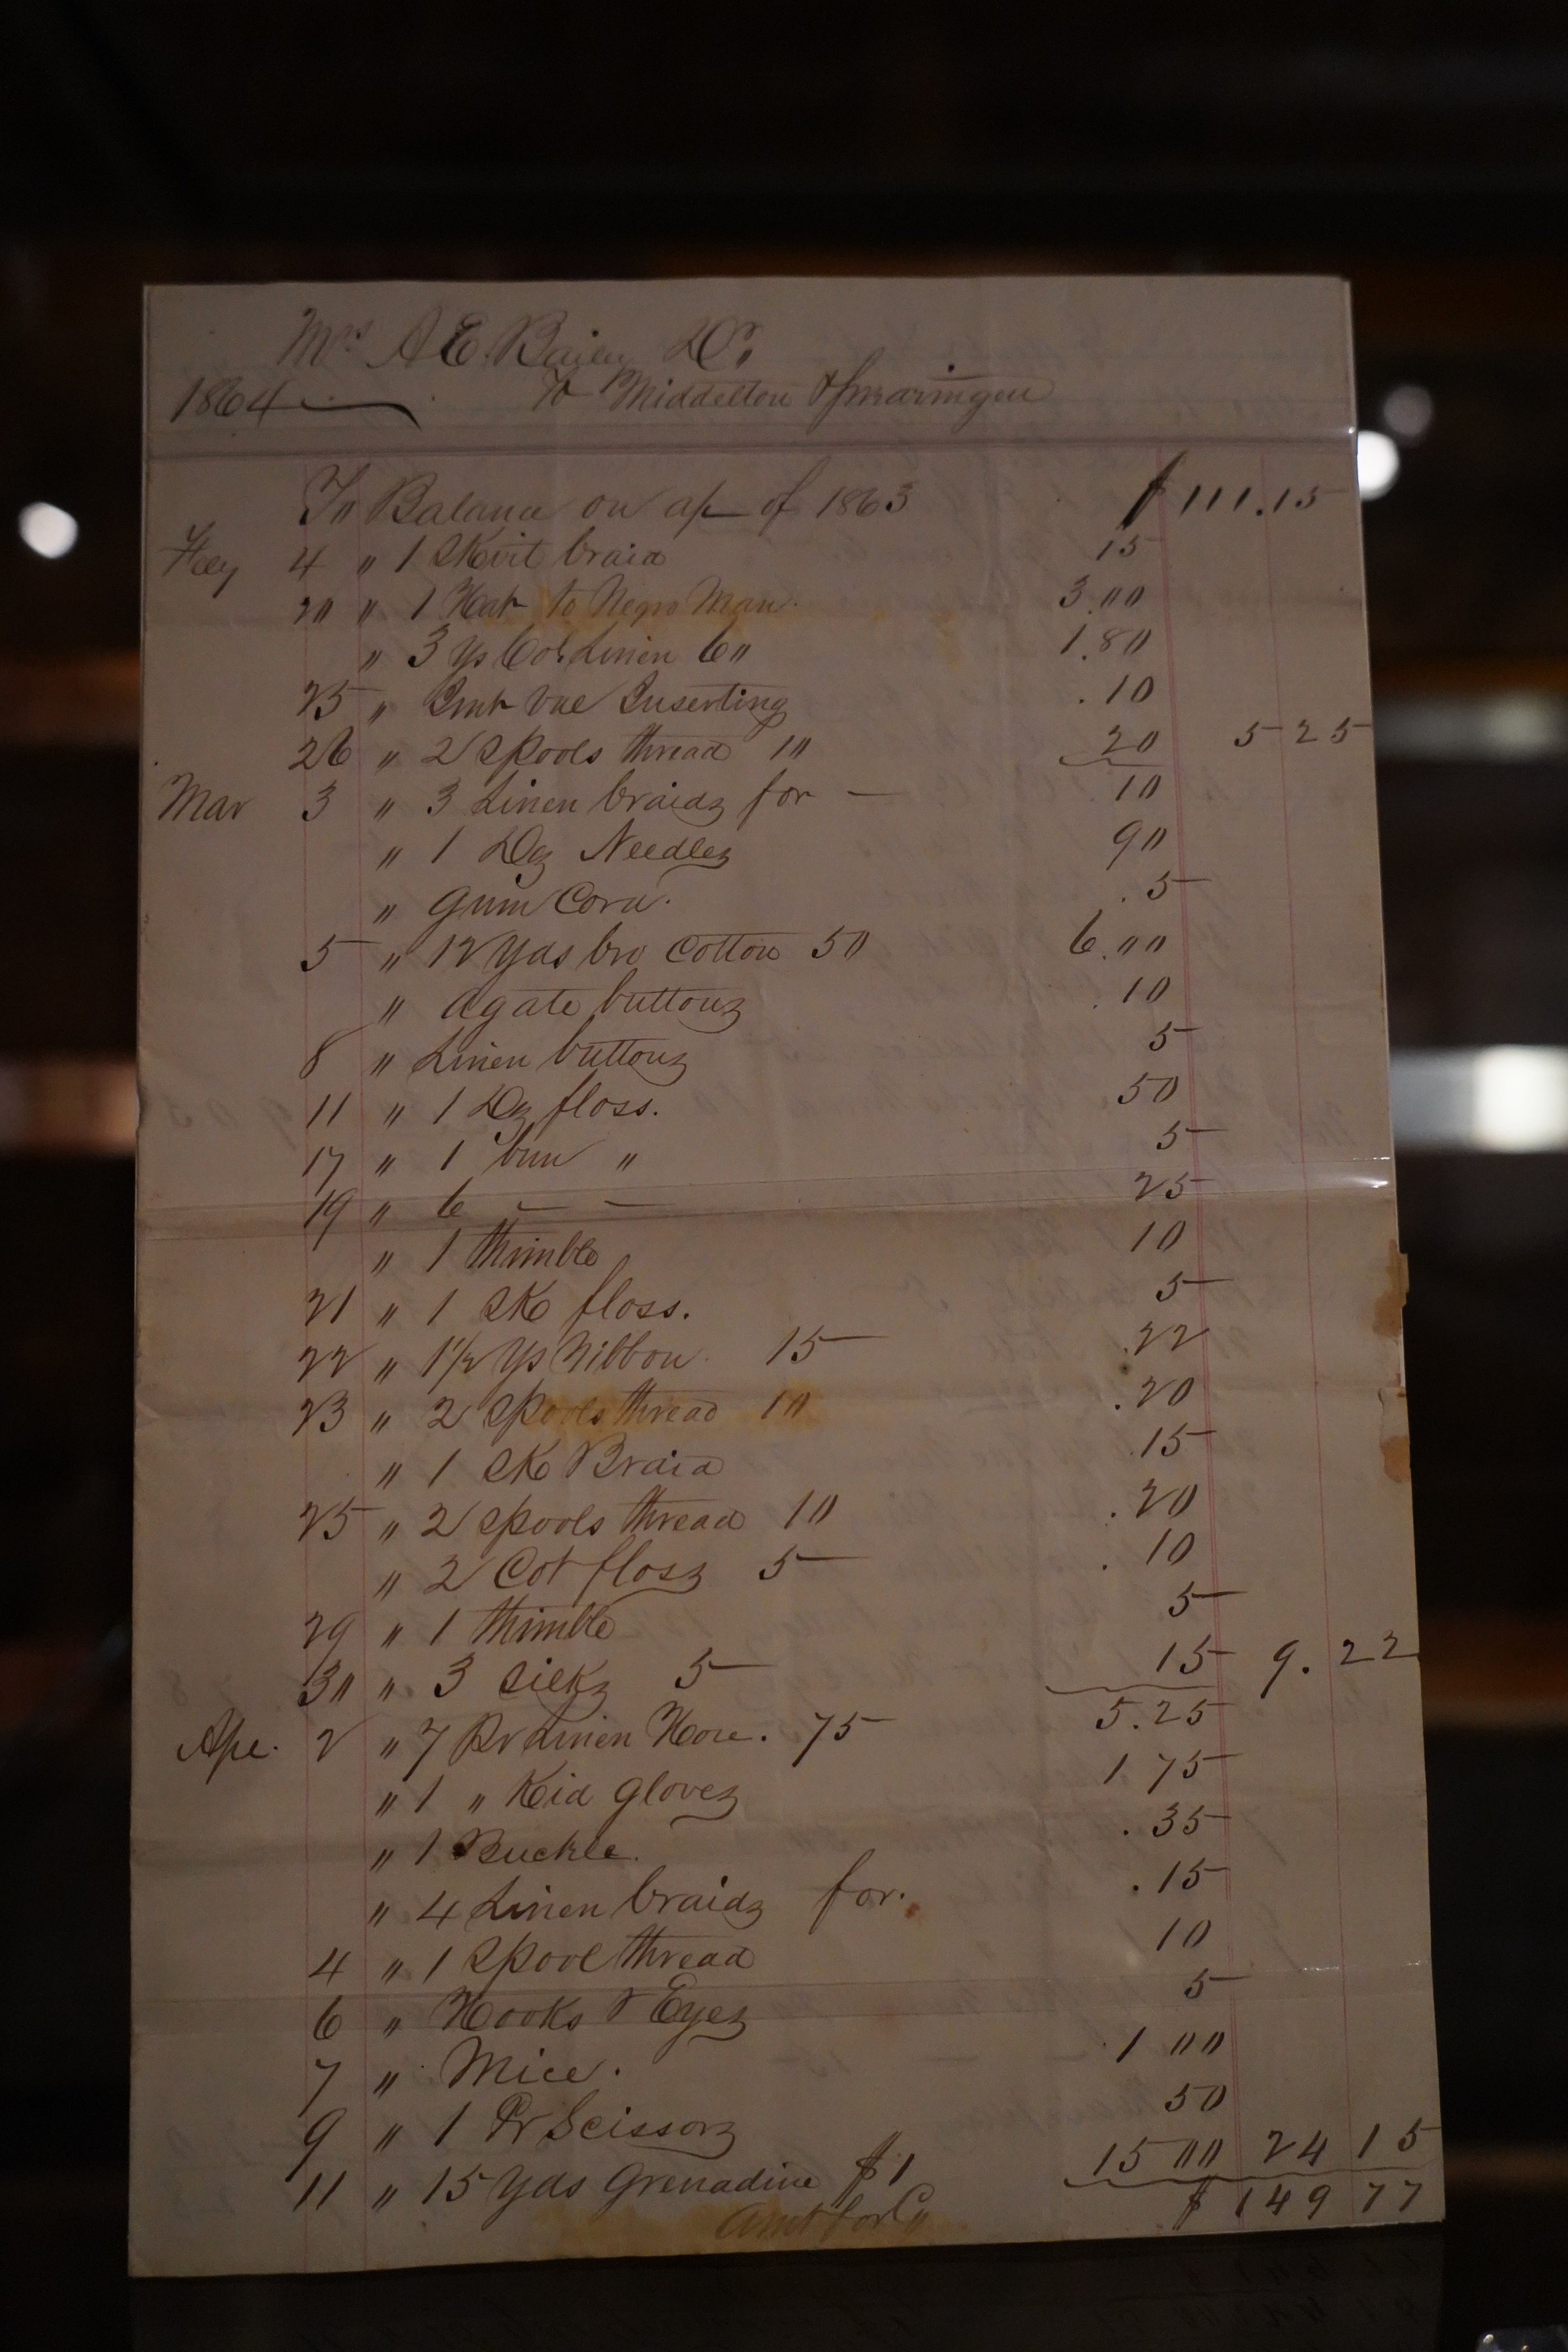 Mrs A E. Bailey Dr,
1864 To Middelton & Swaringen
To Balance on a/c of 1863 $ 111.15
Feby 4 " 1 Skirt braid 15
20 " 1 Hat to Negro Man. 3.00
" 3 Ys Cold Linen 60 1.80
25 " Inserting .10
26 " 2 Spools thread 10 20 5 25
Mar 3 " 3 Linen braids for — 10
" 1 Dz Needles 90
" Gum Cord. .5
5 " 12 Yds bro Cotton 50 6.00
" Agate buttons .10
8 " Linen buttons 5
11 " 1 Dz floss. 50
17 " 1 bun " 5
19 " 6 — — 25
" 1 thimble 10
21 " 1 SK floss. 5
22 " 1½ Ys Ribbon. 15 .22
23 " 2 Spools thread 10 .20
" 1 SK Braid .15
25 " 2 Spools thread 10 .20
" 2 Cot floss 5 .10
29 " 1 thimble 5
30 " 3 Silks 5 15 9.22
Apl. 2 " 7 Pr Linen Hose. 75 5.25
" 1 " Kid Gloves 1 75
" 1 Buckle. .35
" 4 Linen braids for. .15
4 " 1 Spool thread 10
6 " Hooks & Eyes 5
7 " Mice. 1 00
9 " 1 Pr Scissors 50
11 " 15 Yds Grenadine $1 15 00 24 15
Amt for $ 149 77